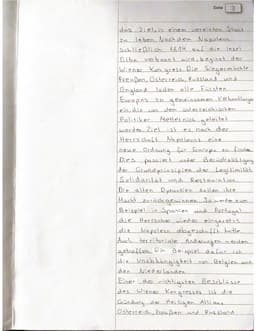 Seite 3
das Ziel, in einem vereinten Staat
zu leben. Nachdem Napoleon
schließlich 1814 auf die Insel
Elba verbannt wird, beginnt der
Wiener Kongress. Die Siegermächte
Preußen, Österreich, Russland und
England laden alle Fürsten
Europas zu gemeinsamen Verhandlungen
ein, die von dem österreichischen
Politiker Metternich geleitet
werden. Ziel ist es, nach der
Herrschaft Napoleons eine
neue Ordnung für Europa zu finden.
Dies passiert unter Berücksichtigung
der Grundprinzipien der Legitimität,
Solidarität und Restauration.
Die alten Dynastien sollen ihre
Macht zurückgewinnen. So werden zum
Beispiel in Spanien und Portugal
die Herrscher wieder eingesetzt,
die Napoleon abgeschafft hatte.
Auch territoriale Änderungen werden
getroffen. Ein Beispiel dafür ist
die Unabhängigkeit von Belgien und
den Niederlanden.
Einer der wichtigsten Beschlüsse
des Wiener Kongresses ist die
Gründung der Heiligen Allianz
Österreich, Preußen und Russland